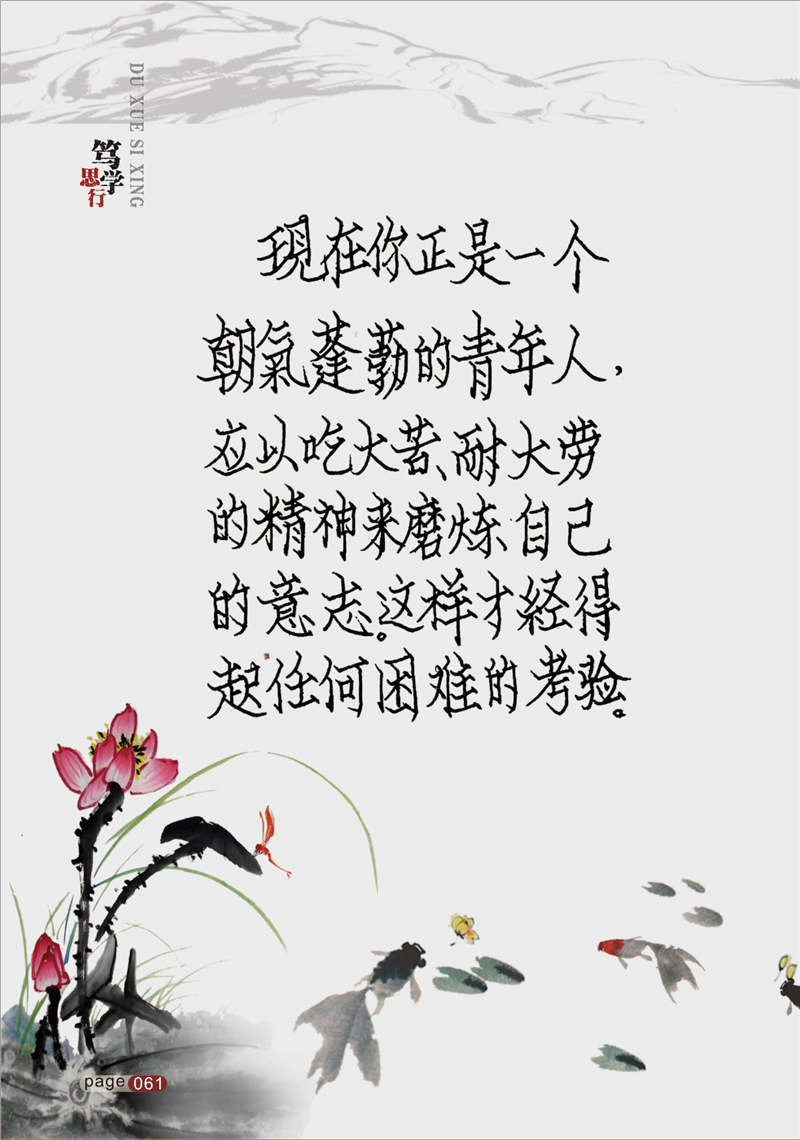 DU XUE SI XING
笃学
思行
现在你正是一个
朝氣蓬勃的青年人，
应以吃大苦、耐大劳
的精神来磨炼自己
的意志。这样才经得
起任何困难的考验。
page 061